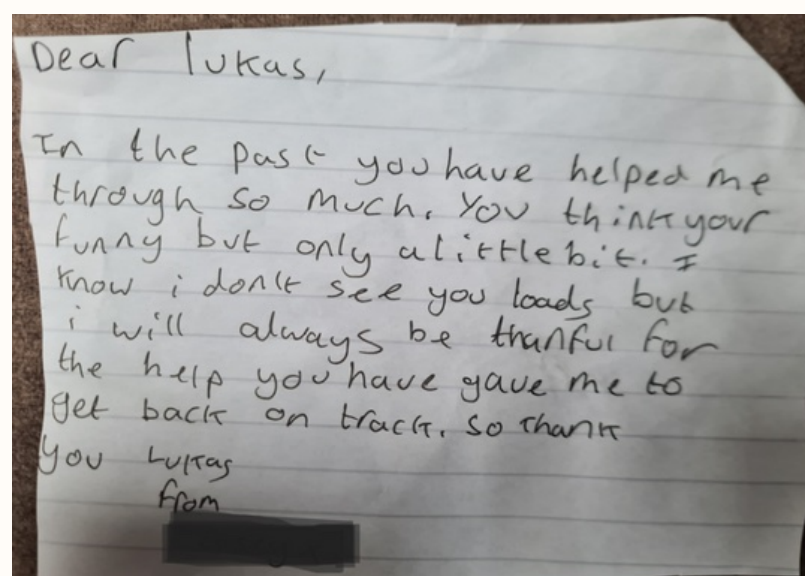 Dear lukas,
In the past you have helped me
through so much. You think your
funny but only a little bit. I
know i don't see you loads but
i will always be thanful for
the help you have gave me to
get back on track. so thank
you Lukas
from